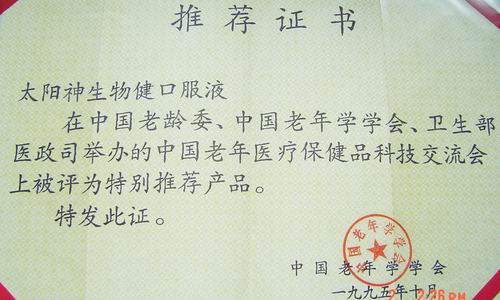 推荐证书
太阳神生物健口服液
在中国老龄委、中国老年学学会、卫生部
医政司举办的中国老年医疗保健品科技交流会
上被评为特别推荐产品。
特发此证。
中国老年学学会
中国老年学学会
一九九五年十月
2:26 PM